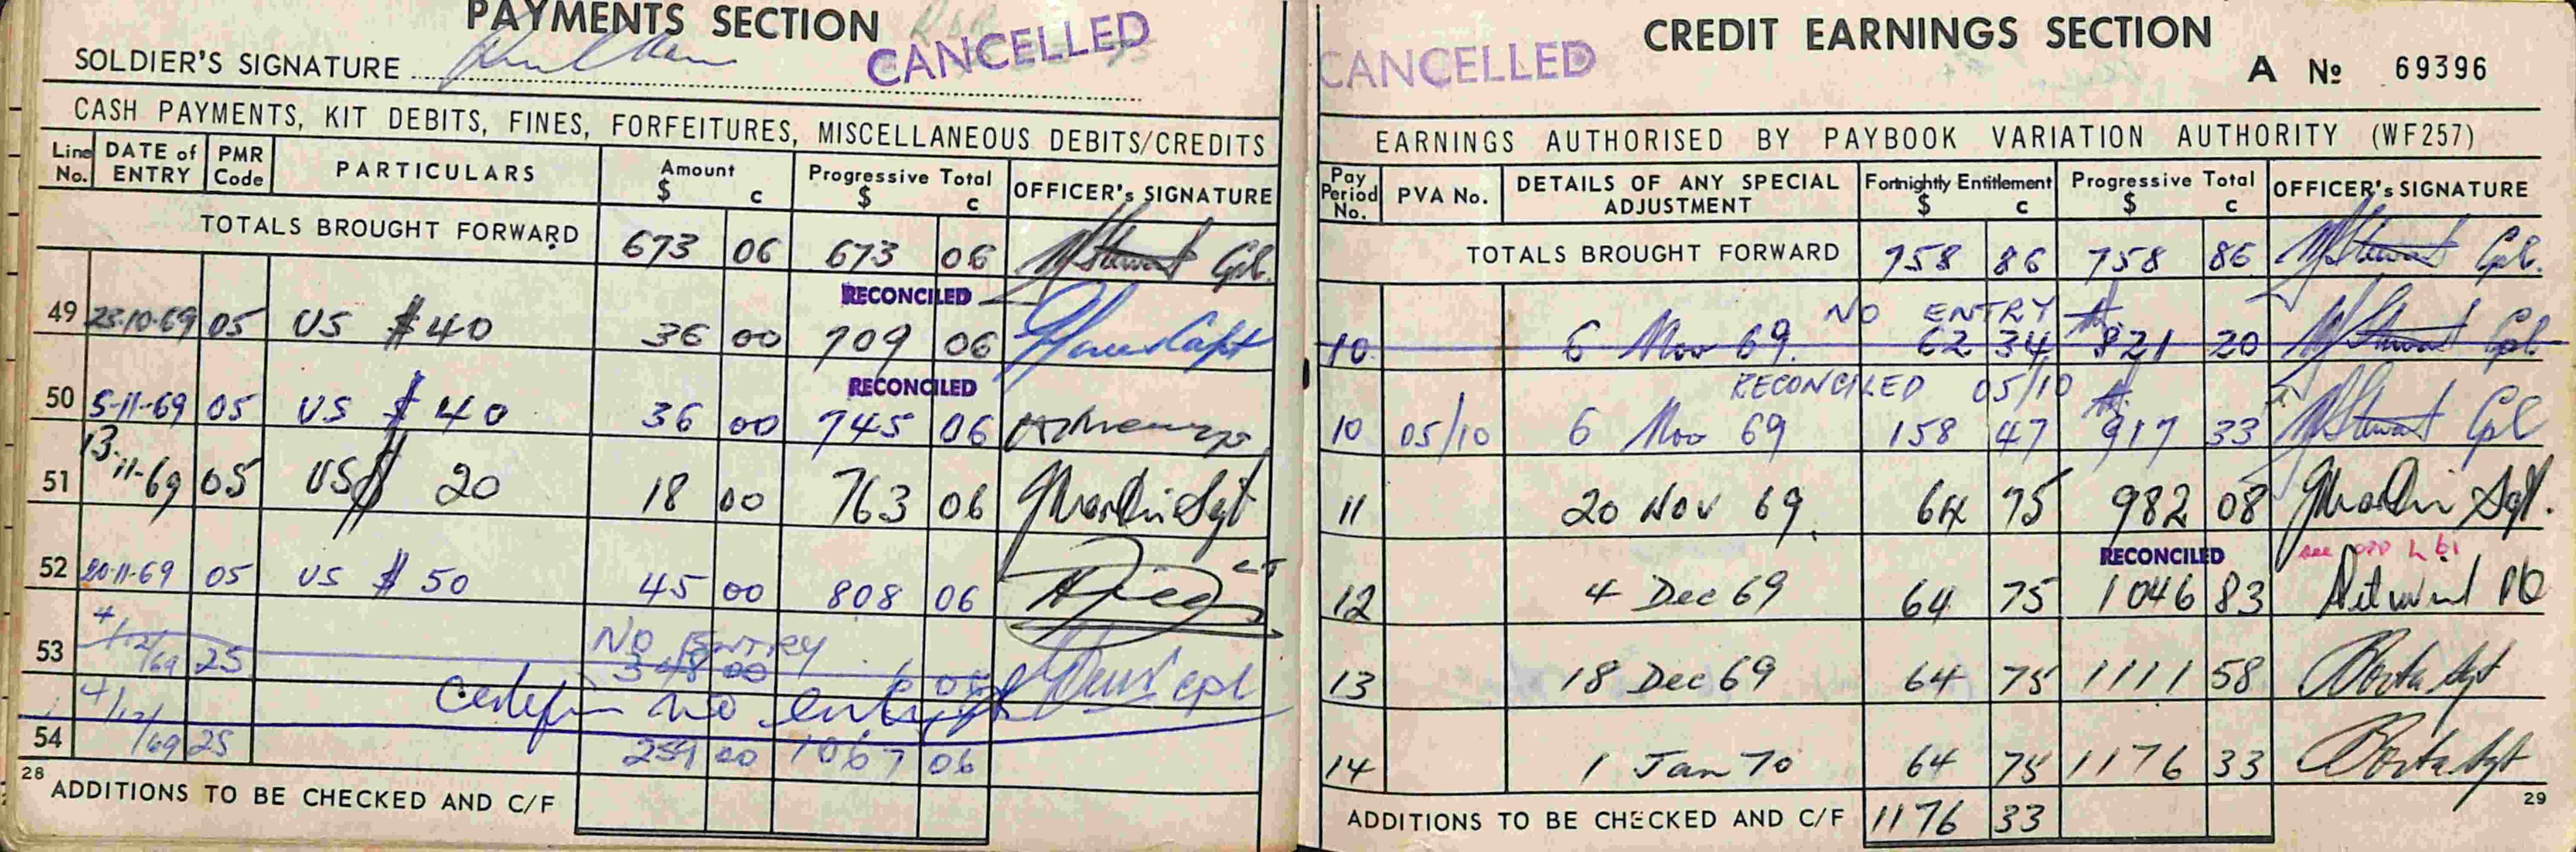 PAYMENTS SECTION
CANCELLED
SOLDIER'S SIGNATURE
CASH PAYMENTS, KIT DEBITS, FINES, FORFEITURES, MISCELLANEOUS DEBITS/CREDITS
Line No. DATE of ENTRY PMR Code PARTICULARS Amount $ c Progressive Total $ c OFFICER's SIGNATURE
TOTALS BROUGHT FORWARD 673 06 673 06 Stewart Cpl.
RECONCILED
49 23-10-69 05 US $ 40 36 00 709 06 Capt
RECONCILED
50 5-11-69 05 US $ 40 36 00 745 06
51 13-11-69 05 US $ 20 18 00 763 06 Martin Sgt
52 20-11-69 05 US $ 50 45 00 808 06 LT
NO ENTRY
53 4/12/69 25 00 Cpl
Certified no entry
54 4/12/69 25 259 00 1067 06
28 ADDITIONS TO BE CHECKED AND C/F
CREDIT EARNINGS SECTION
CANCELLED
A No 69396
EARNINGS AUTHORISED BY PAYBOOK VARIATION AUTHORITY (WF257)
Pay Period No. PVA No. DETAILS OF ANY SPECIAL ADJUSTMENT Fortnightly Entitlement $ c Progressive Total $ c OFFICER's SIGNATURE
TOTALS BROUGHT FORWARD 758 86 758 86 Stewart Cpl.
NO ENTRY
10 6 Nov 69. 62 34 821 20 Stewart Cpl.
RECONCILED 05/10
10 05/10 6 Nov 69 158 47 917 33 Stewart Cpl
11 20 Nov 69. 64 75 982 08 Martin Sgt.
RECONCILED see
12 4 Dec 69 64 75 1046 83
13 18 Dec 69 64 75 1111 58 Sgt
14 1 Jan 70 64 75 1176 33 Sgt
ADDITIONS TO BE CHECKED AND C/F 1176 33
29